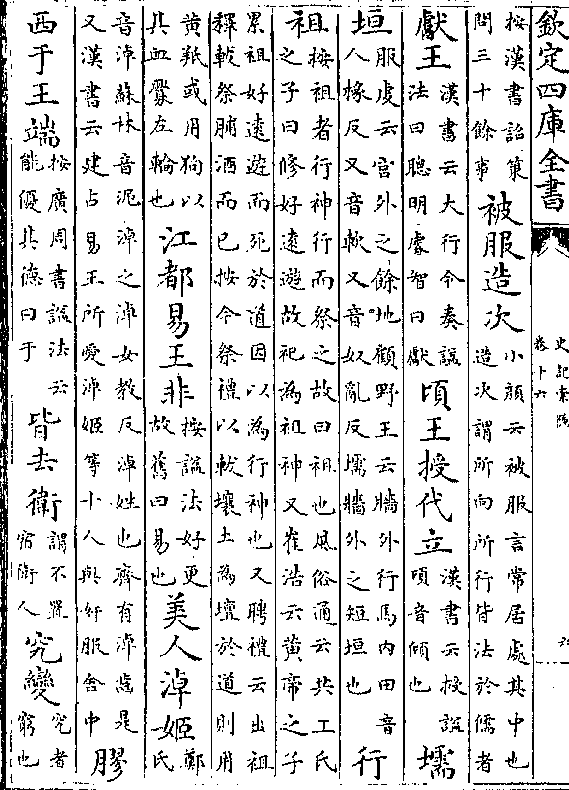 欽定四庫全書
史記索隱
卷十六
按漢書詔策
問三十餘事
被服造次
小顔云被服言常居處其中也
造次謂所向所行皆法於儒者
獻王
漢書云大行令奏諡
法曰聰明睿智曰獻
頃王授代立
漢書云授諡
頃音傾也
壖
垣
服䖍云宫外之餘地顧野王云牆外行馬内田音
人椽反又音軟又音奴亂反壖牆外之短垣也
行
祖
按祖者行神行而祭之故曰祖也風俗通云共工氏
之子曰修好遠遊故祀為祖神又崔浩云黄帝之子
累祖好遠遊而死於道因以為行神也又聘禮云出祖
釋軷祭脯酒而已按今祭禮以軷壤土為壇於道則用
黄羝或用狗以
其血釁左輪也
江都易王非
按諡法好更
故舊曰易也
美人淖姬
鄭氏
音淖蘇林音泥淖之淖女教反淖姓也齊有淖齒是
又漢書云建占易王所愛淖姬等十人與奸服舍中
膠
西于王端
按廣周書諡法云
能優其德曰于
皆去衛
謂不置
宿衛人
究變
究者
窮也